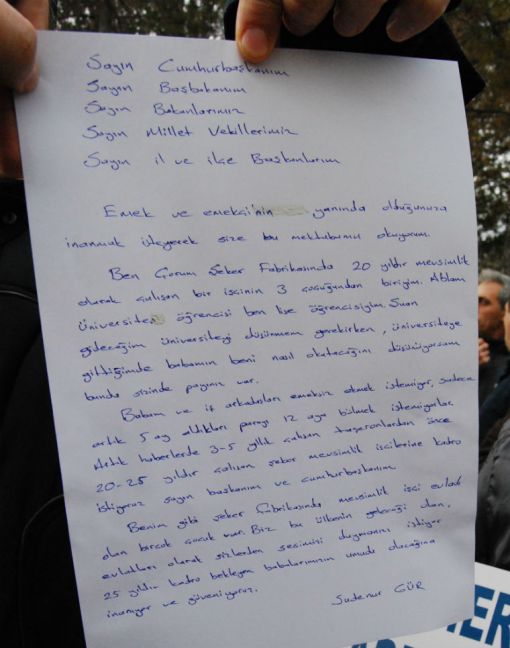 Sayın Cumhurbaşkanım
Sayın Başbakanım
Sayın Bakanlarımız
Sayın Millet Vekillerimiz
Sayın il ve ilçe Başkanlarım
Emek ve emekçi'nin yanında olduğunuza
inanmak isteyerek size bu mektubumu okuyorum.
Ben Çorum Şeker Fabrikasında 20 yıldır mevsimlik
olarak çalışan bir işçinin 3 çocuğundan biriyim. Ablam
üniversite öğrencisi ben lise öğrencisiyim. Şuan
gideceğim üniversiteyi düşünmem gerekirken, üniversiteye
gittiğimde babamın beni nasıl okutacağını düşünüyorsam
bunda sizinde payınız var.
Babam ve iş arkadaşları emeksiz ekmek istemiyor, sadece
artık 5 ay aldıkları parayı 12 aya bölmek istemiyorlar.
Artık haberlerde 3-5 yıllık çalışan taşeronlardan önce
20-25 yıldır çalışan şeker mevsimlik işcilerine kadro
istiyoruz sayın başkanım ve cumhurbaşkanım
Benim gibi şeker fabrikasında mevsimlik işçi evladı
olan birçok çocuk var. Biz bu ülkenin geleceği olan,
evlatları olarak sizlerden sesimizi duymanızı istiyor
25 yıldır kadro bekleyen babalarımızın umudu olacağına
inanıyor ve güveniyoruz.
Sudenur GÜR
ER